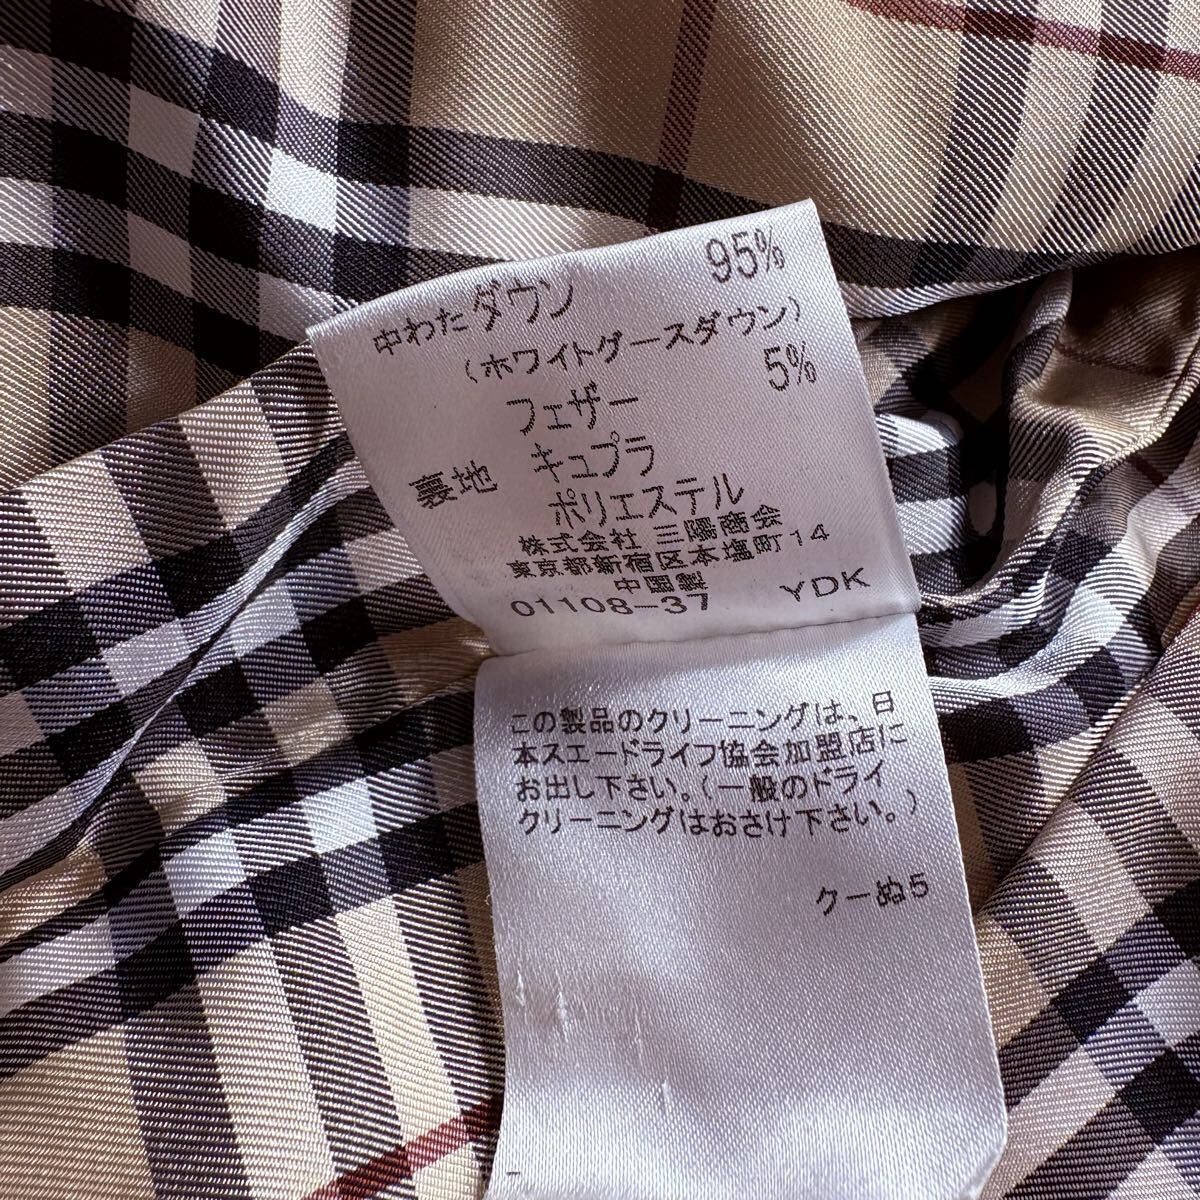 中わたダウン 95%
(ホワイトグースダウン)
フェザー 5%
裏地 キュプラ
ポリエステル
株式会社 三陽商会
東京都新宿区本塩町14
中国製
01108-37 YDK
この製品のクリーニングは、日
本スエードライフ協会加盟店に
お出し下さい。(一般のドライ
クリーニングはおさけ下さい。)
クーぬ5